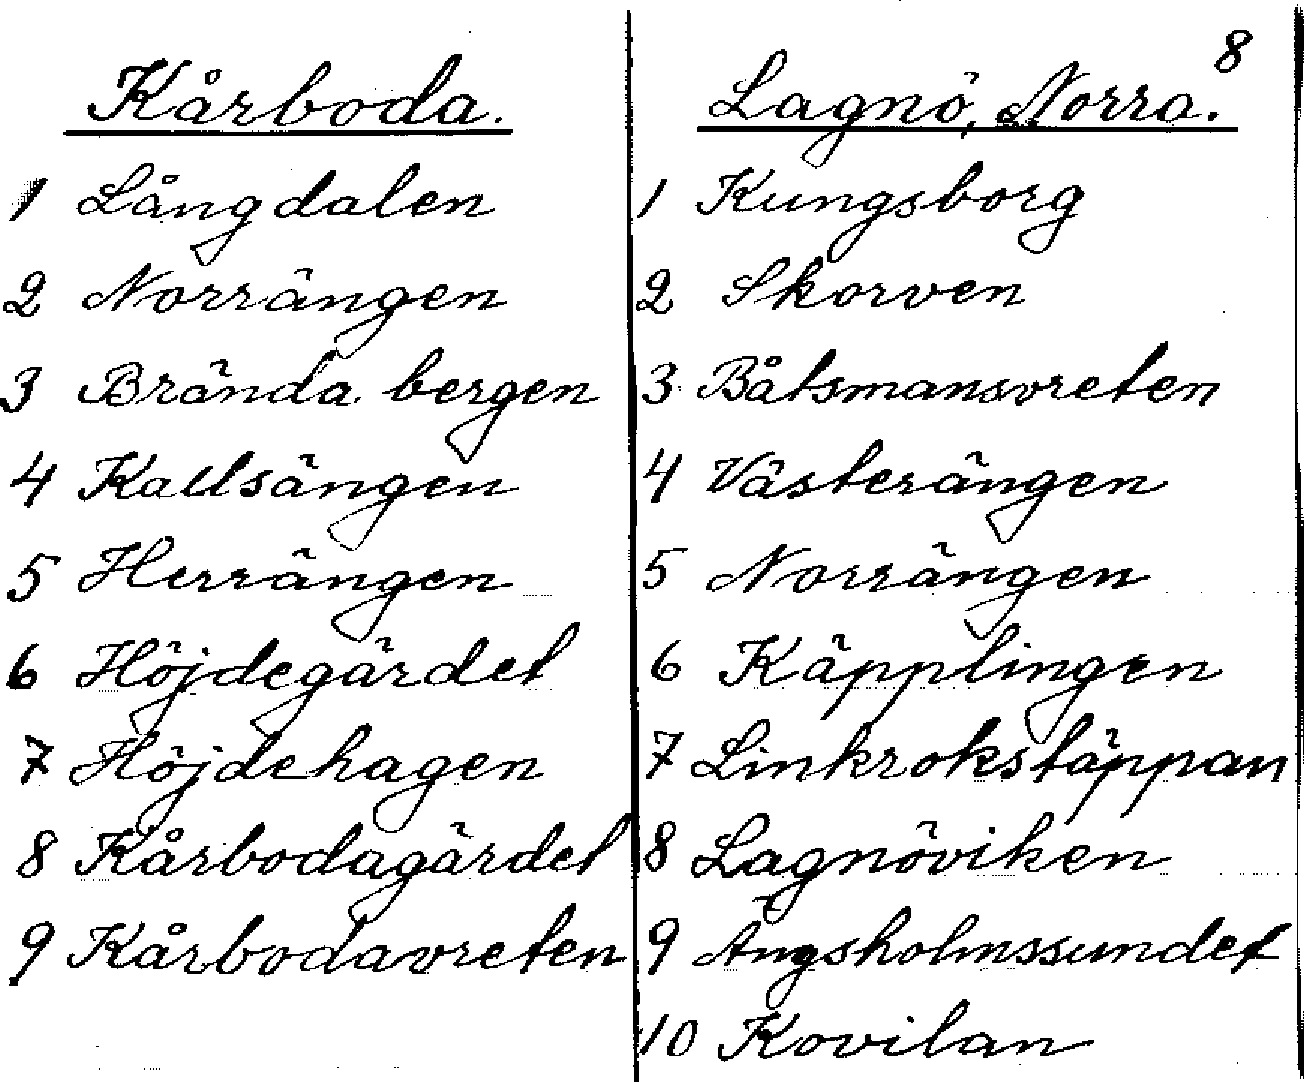 8
Kårboda.
1 Långdalen
2 Norrängen
3 Brända bergen
4 Kallsängen
5 Herrängen
6 Höjdegärdet
7 Höjdehagen
8 Kårbodagärdet
9 Kårbodavreten
Lagnö, Norra.
1 Kungsborg
2 Skorven
3 Båtsmansvreten
4 Västerängen
5 Norrängen
6 Käpplingen
7 Linkrokstäppan
8 Lagnöviken
9 Ängsholmssundet
10 Kovilan